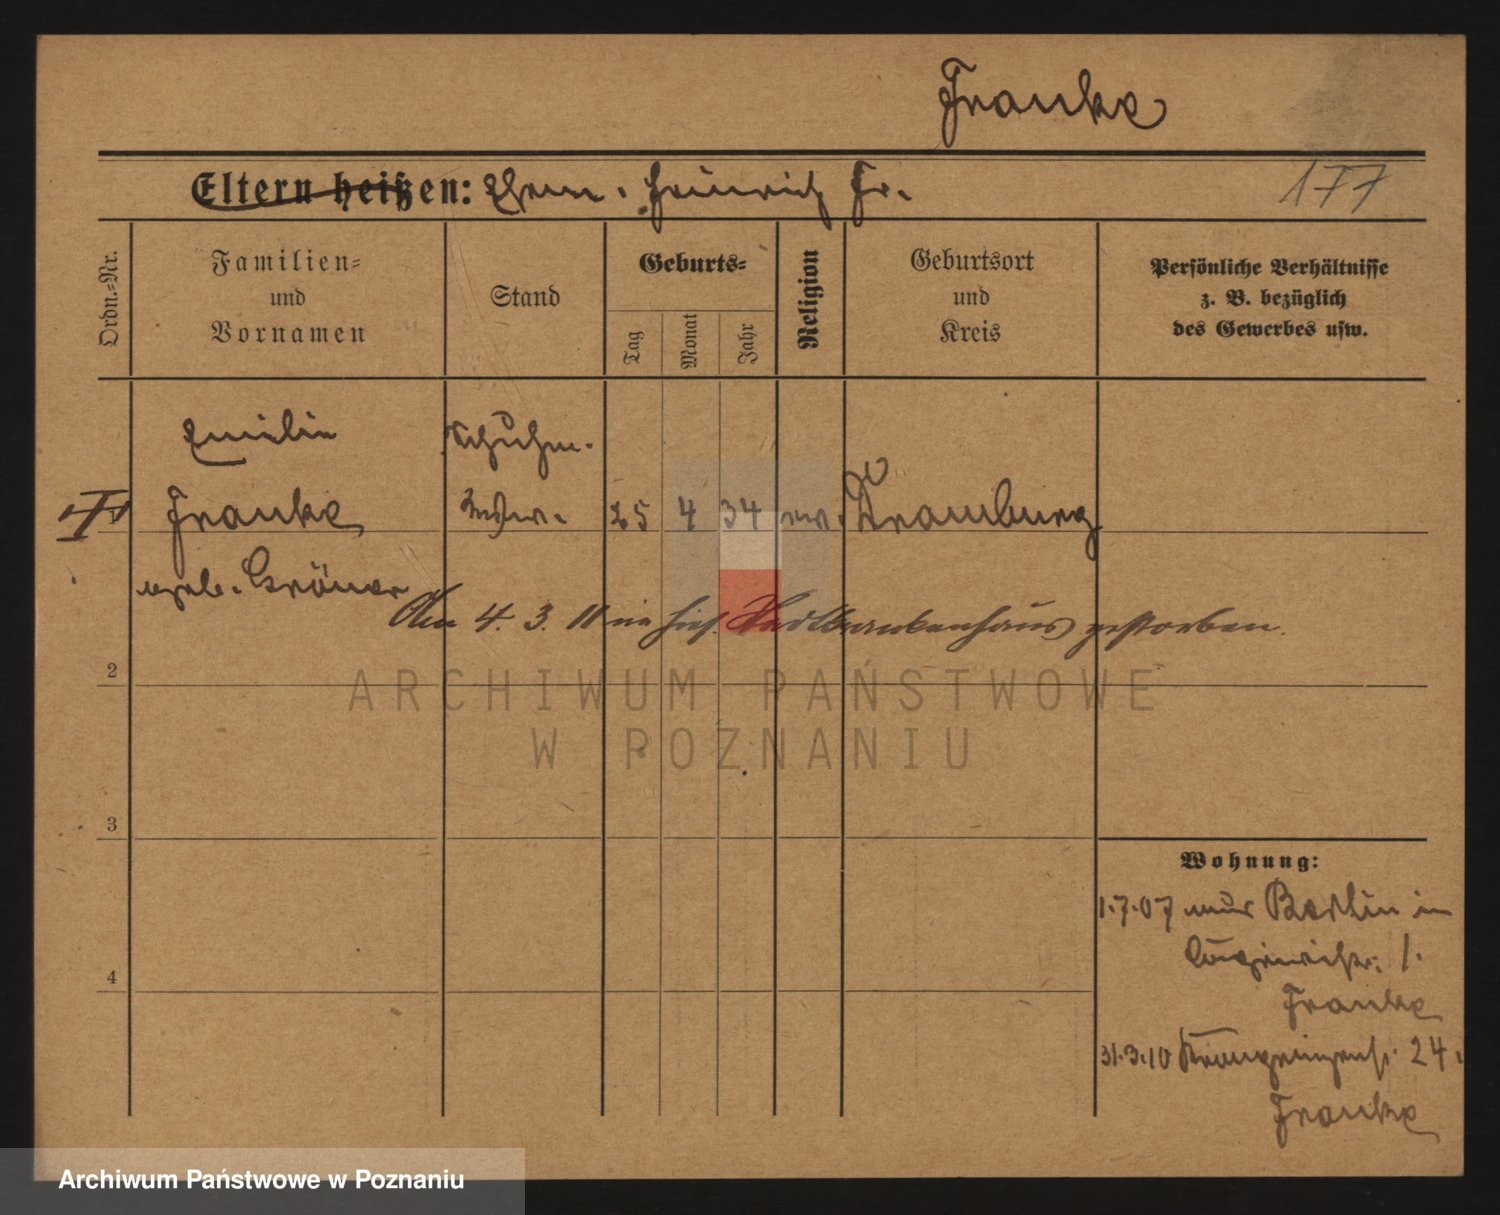 Franke
Eltern heißen: Ehem. Heinrich Fr. 177
Ordn.-Nr.
Familien-
und
Vornamen
Stand
Geburts-
Tag
Monat
Jahr
Religion
Geburtsort
und
Kreis
Persönliche Verhältnisse
z. B. bezüglich
des Gewerbes usw.
Emilie Schuhm.
Franke Wwe. 25 4 34 ev. Dramburg
geb. Gröner
Am 4. 3. 11 im hies. Stadtkrankenhaus gestorben.
2
ARCHIWUM PAŃSTWOWE
W POZNANIU
3
Wohnung:
1.7.07 aus Berlin in
1.
Franke
4
31.3.10 24.
Franke
Archiwum Państwowe w Poznaniu